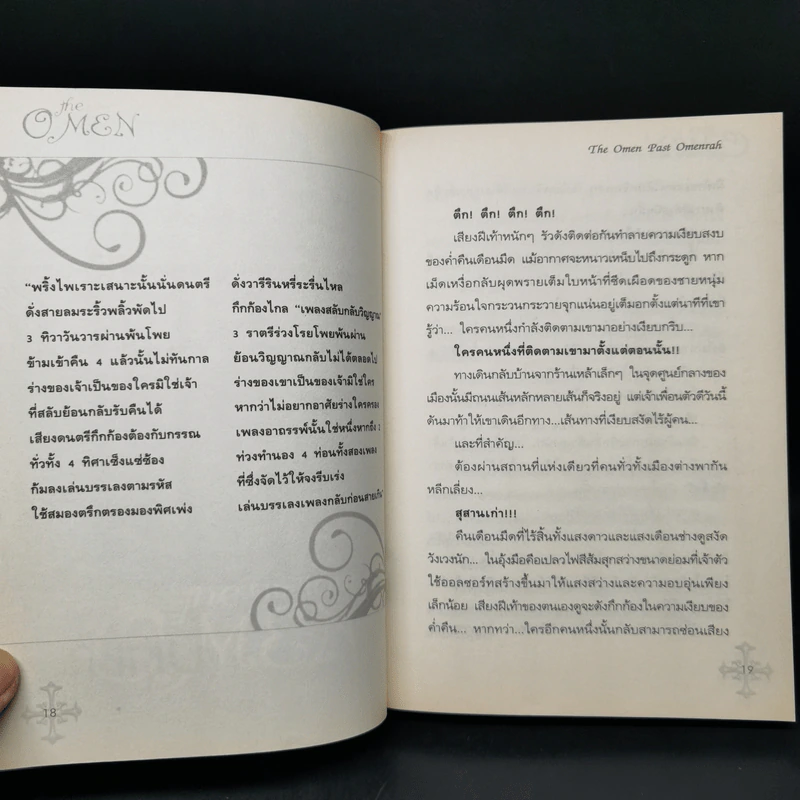 the
OMEN
"พริ้งไพเราะเสนาะนั้นนั่นดนตรี ดั่งวารีรินหรี่ระรื่นไหล
ดั่งสายลมระริ้วพลิ้วพัดไป กึกก้องไกล "เพลงสลับกลับวิญญาณ"
3 ทิวาวันวารผ่านพ้นโพย 3 ราตรีร่วงโรยโพยพ้นผ่าน
ข้ามเข้าคืน 4 แล้วนั้นไม่ทันกาล ย้อนวิญญาณกลับไม่ได้ตลอดไป
ร่างของเจ้าเป็นของใครมิใช่เจ้า ร่างของเขาเป็นของเจ้ามิใช่ใคร
ที่สลับย้อนกลับรับคืนได้ หากว่าไม่อยากอาศัยร่างใครครอง
เสียงดนตรีกึกก้องต้องกับกรรณ เพลงอาถรรพ์นั้นใช่หนึ่งหากถึง 2
ทั่วทั้ง 4 ทิศาเซ็งแซ่ซ้อง ท่วงทำนอง 4 ท่อนทั้งสองเพลง
ก้มลงเล่นบรรเลงตามรหัส ที่ซึ่งจัดไว้ให้จงรีบเร่ง
ใช้สมองตรึกตรองมองพิศเพ่ง เล่นบรรเลงเพลงกลับก่อนสายเกิน"
18
The Omen Past Omenrah
ตึก! ตึก! ตึก! ตึก!
เสียงฝีเท้าหนักๆ รัวดังติดต่อกันทำลายความเงียบสงบ
ของค่ำคืนเดือนมืด แม้อากาศจะหนาวเหน็บไปถึงกระดูก หาก
เม็ดเหงื่อกลับผุดพรายเต็มใบหน้าที่ซีดเผือดของชายหนุ่ม
ความร้อนใจกระวนกระวายจุกแน่นอยู่เต็มอกตั้งแต่นาทีที่เขา
รู้ว่า... ใครคนหนึ่งกำลังติดตามเขามาอย่างเงียบกริบ...
ใครคนหนึ่งที่ติดตามเขามาตั้งแต่ตอนนั้น!!
ทางเดินกลับบ้านจากร้านเหล้าเล็กๆ ในจุดศูนย์กลางของ
เมืองนั้นมีถนนเส้นหลักหลายเส้นก็จริงอยู่ แต่เจ้าเพื่อนตัวดีวันนี้
ดันมาท้าให้เขาเดินอีกทาง...เส้นทางที่เงียบสงัดไร้ผู้คน...
และที่สำคัญ...
ต้องผ่านสถานที่แห่งเดียวที่คนทั่วทั้งเมืองต่างพากัน
หลีกเลี่ยง...
สุสานเก่า!!!
คืนเดือนมืดที่ไร้สิ้นทั้งแสงดาวและแสงเดือนช่างดูสงัด
วังเวงนัก... ในอุ้งมือคือเปลวไฟสีส้มสุกสว่างขนาดย่อมที่เจ้าตัว
ใช้ออลซอร์ทสร้างขึ้นมาให้แสงสว่างและความอบอุ่นเพียง
เล็กน้อย เสียงฝีเท้าของตนเองดูจะดังกึกก้องในความเงียบของ
ค่ำคืน... หากทว่า...ใครอีกคนหนึ่งนั้นกลับสามารถซ่อนเสียง
19